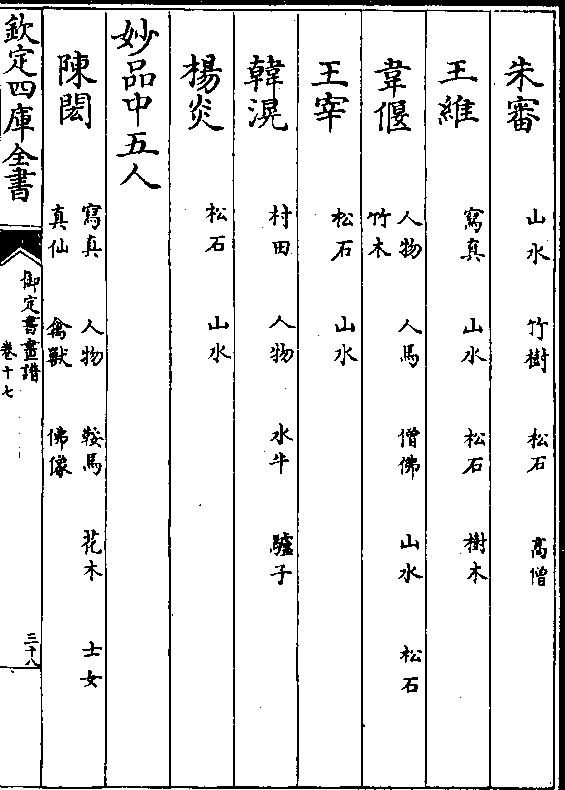 朱審 山水 竹樹 松石 高僧
王維 寫真 山水 松石 樹木
韋偃 人物 人馬 僧佛 山水 松石
竹木
王宰 松石 山水
韓滉 村田 人物 水牛 驢子
楊炎 松石 山水
妙品中五人
陳閎 寫真 人物 鞍馬 花木 士女
真仙 禽獸 佛像
欽定四庫全書
御定書畫譜
卷十七
三十八